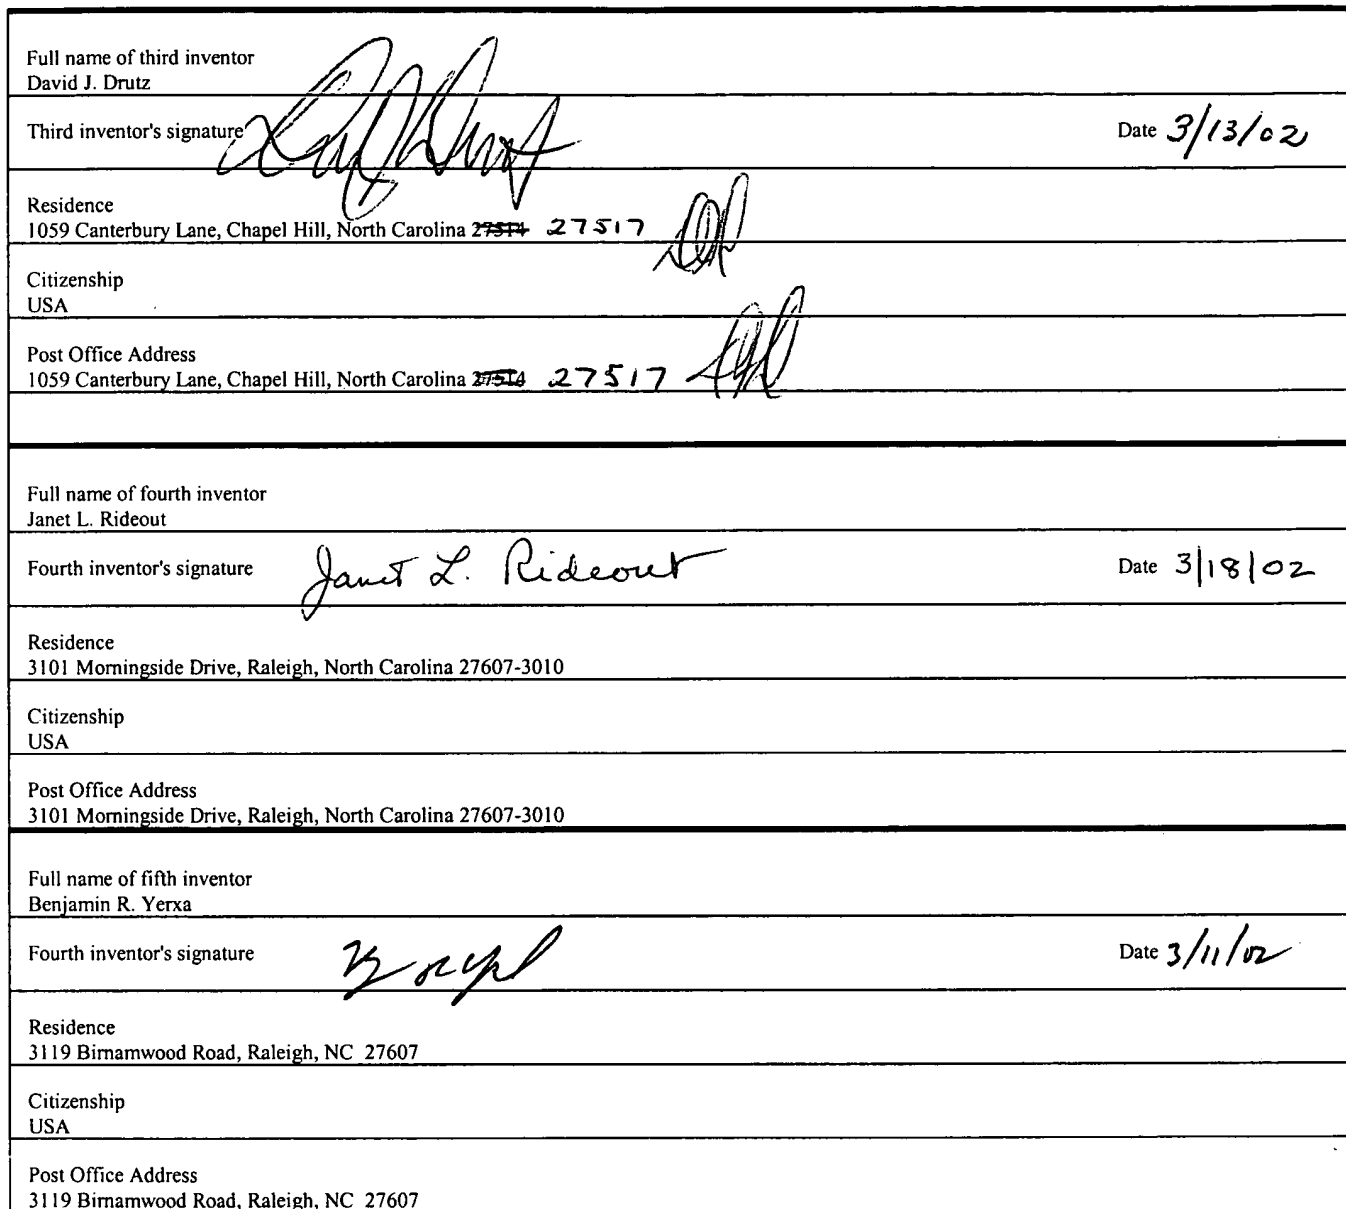 Full name of third inventor
David J. Drutz
Third inventor's signature Date 3/13/02
Residence
1059 Canterbury Lane, Chapel Hill, North Carolina 27514 27517
Citizenship
USA
Post Office Address
1059 Canterbury Lane, Chapel Hill, North Carolina 27514 27517
Full name of fourth inventor
Janet L. Rideout
Fourth inventor's signature Janet L. Rideout Date 3/18/02
Residence
3101 Morningside Drive, Raleigh, North Carolina 27607-3010
Citizenship
USA
Post Office Address
3101 Morningside Drive, Raleigh, North Carolina 27607-3010
Full name of fifth inventor
Benjamin R. Yerxa
Fourth inventor's signature Date 3/11/02
Residence
3119 Birnamwood Road, Raleigh, NC 27607
Citizenship
USA
Post Office Address
3119 Birnamwood Road, Raleigh, NC 27607